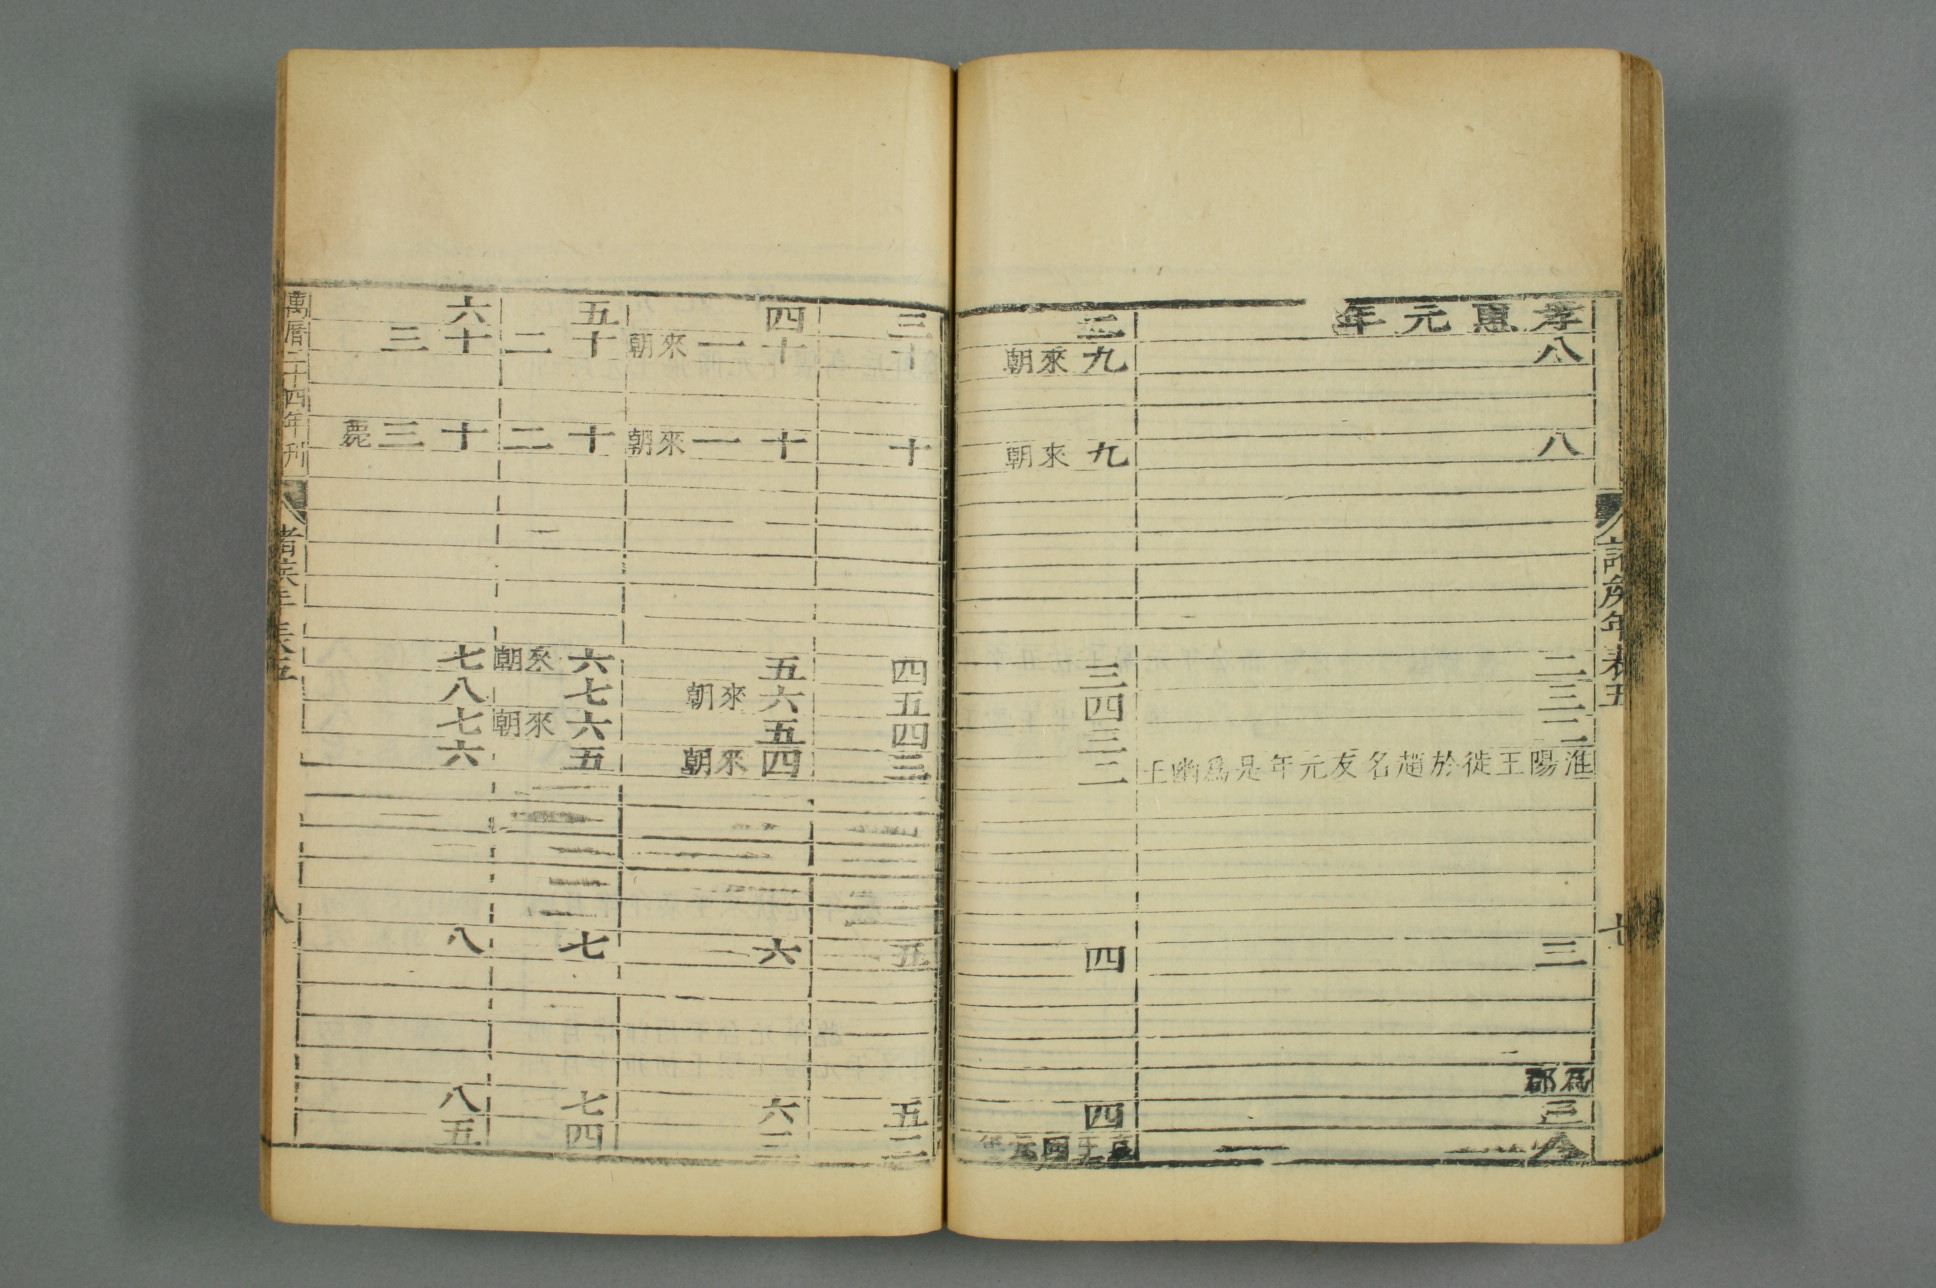 諸侯年表五
七
孝惠元年
八
八
二
三
二
淮陽王徙於趙名友元年是爲幽王
三
爲郡
三
二
九來朝
九來朝
三
四
三
二
四
四
三
十
十
四
五
四
三
五
五
二
四
十一來朝
十一來朝
五
六來朝
五
四來朝
六
六
三
五
十二
十二
六來朝
七
六來朝
五
七
七
四
六
十三
十三薨
七
八
七
六
八
八
五
萬曆二十四年刊
諸侯年表五
八